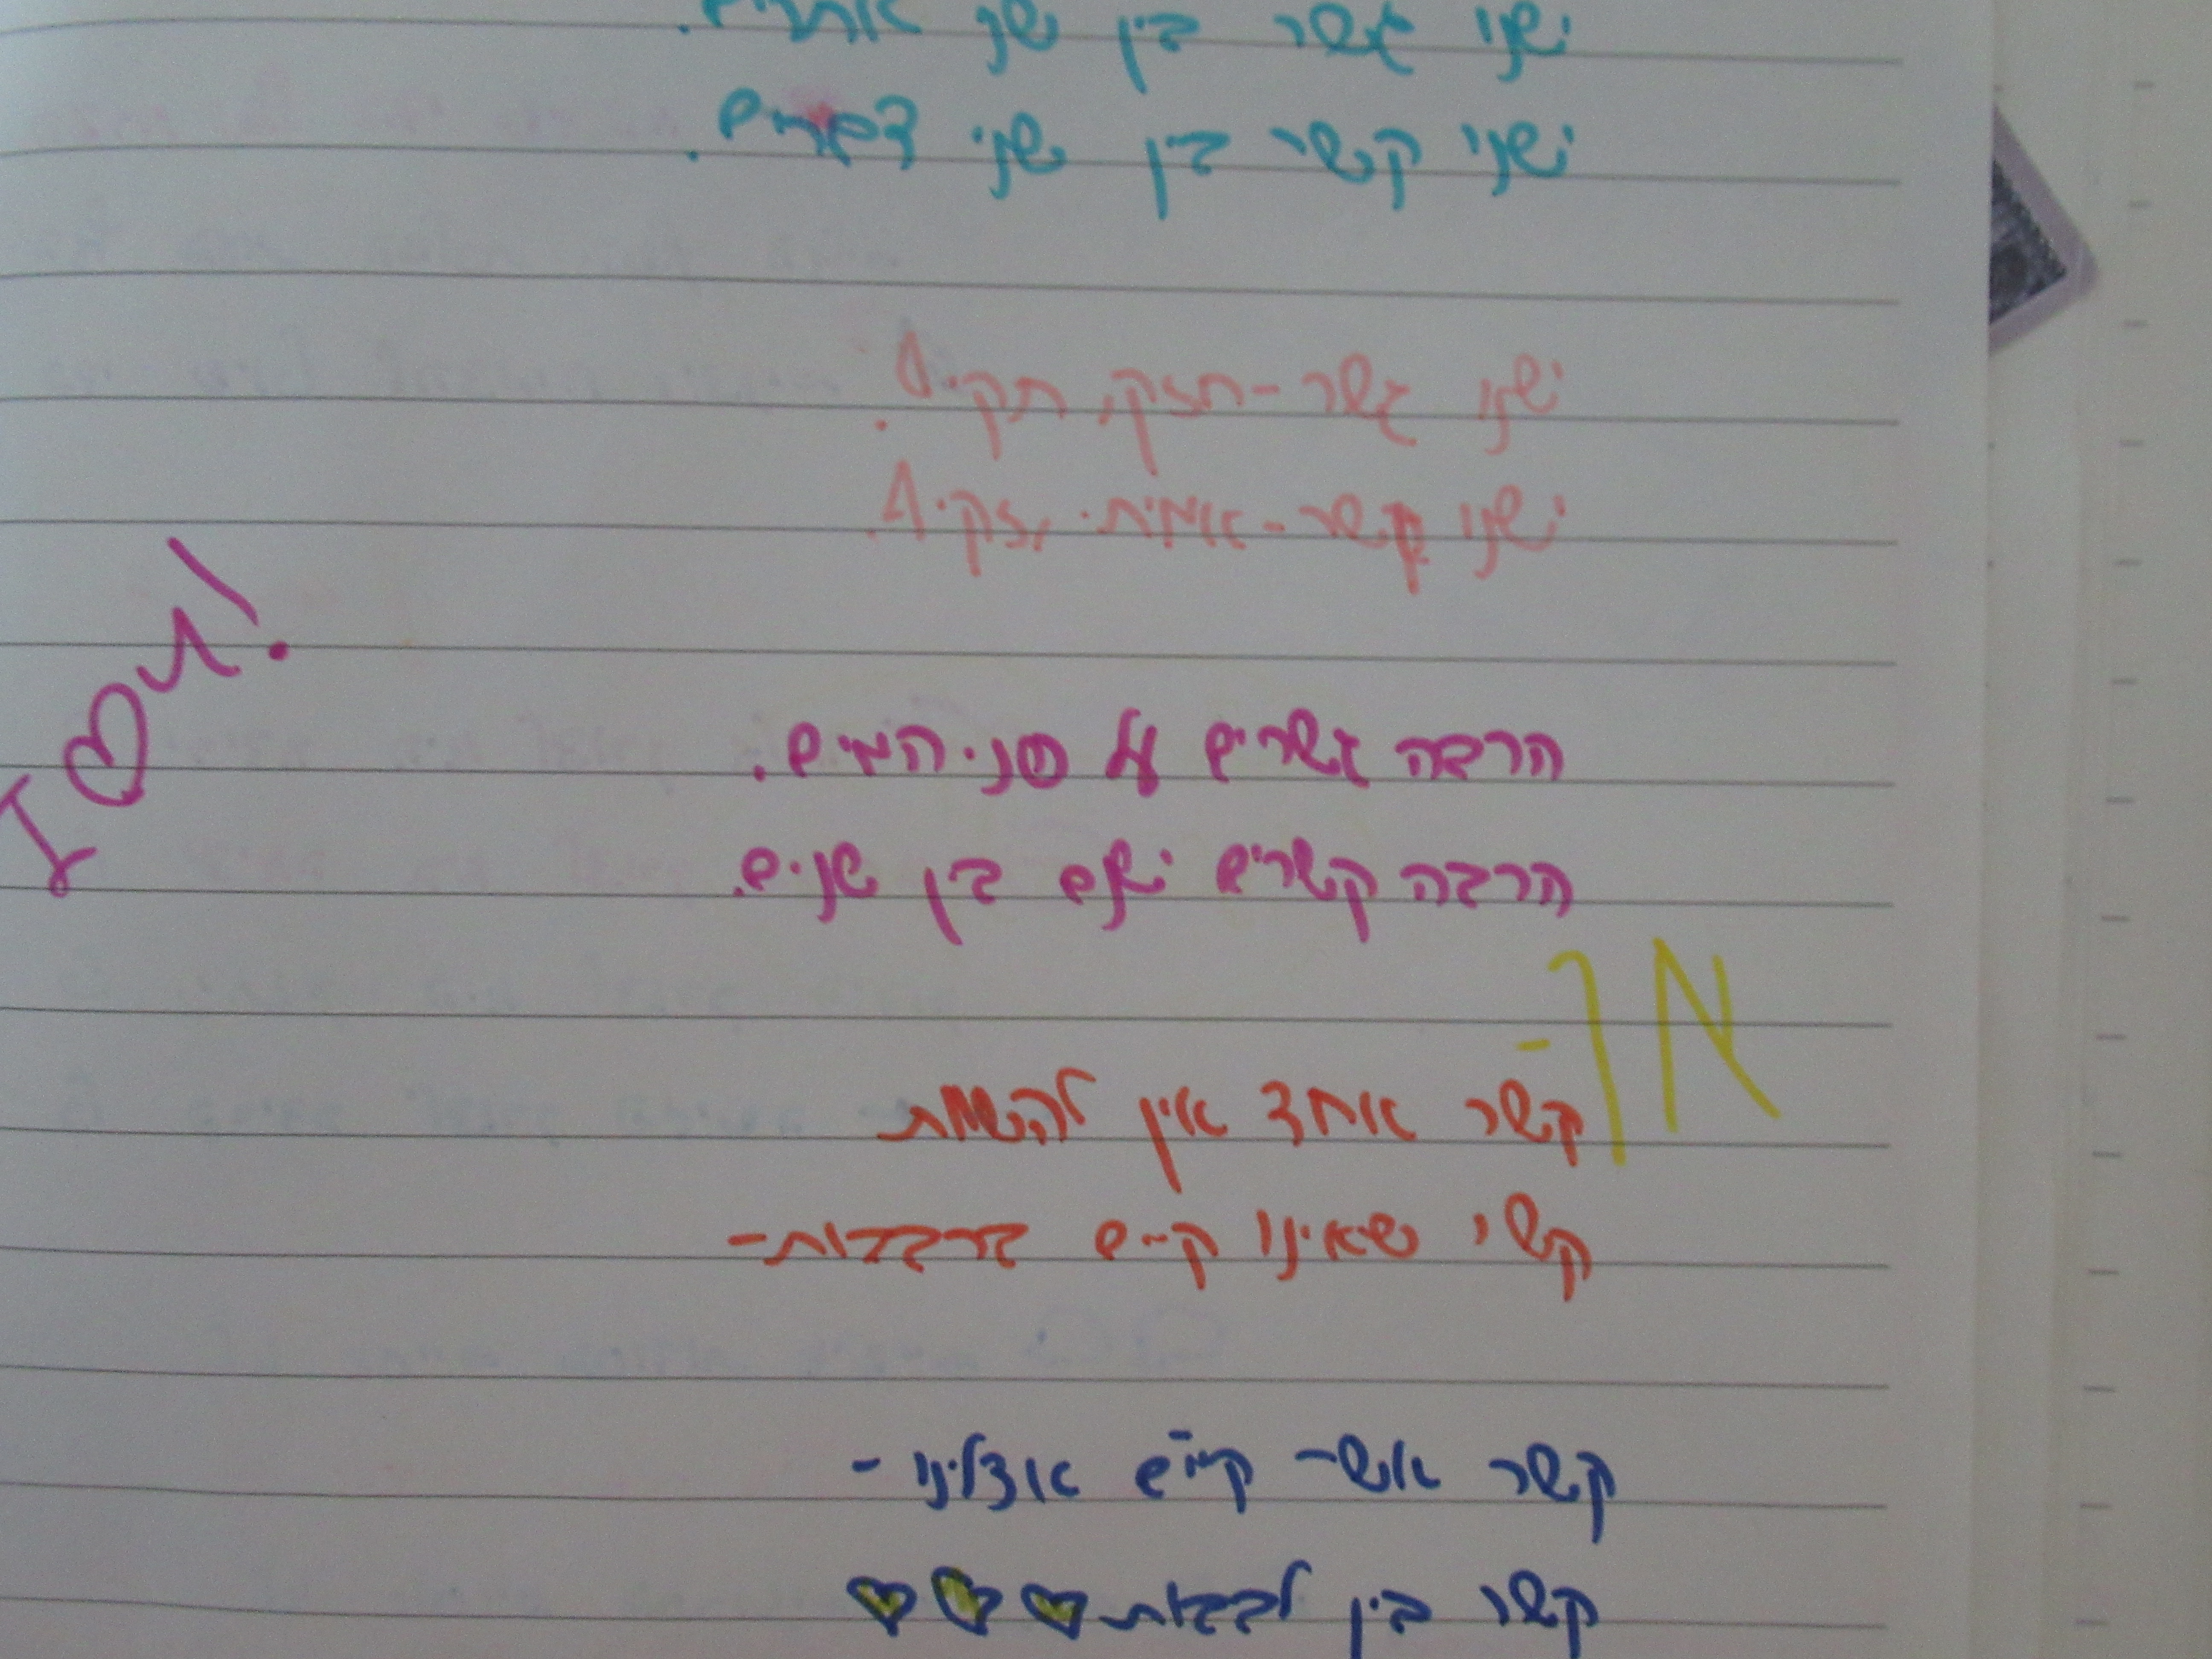 ישנו גשר בין שני אתרים.
ישנו קשר בין שני דברים.
ישנו גשר - חזק, תקיף.
ישנו קשר - אמיתי, זקיף.
הרבה גשרים על פני המים.
הרבה קשרים ישנם בין שניים.
אך -
קשר אחד אין להשוות
קשר שאינו קיים ברבבות -
קשר אשר קיים אצלינו -
קשר בין לבבות ♡♡♡
I ♡ את!